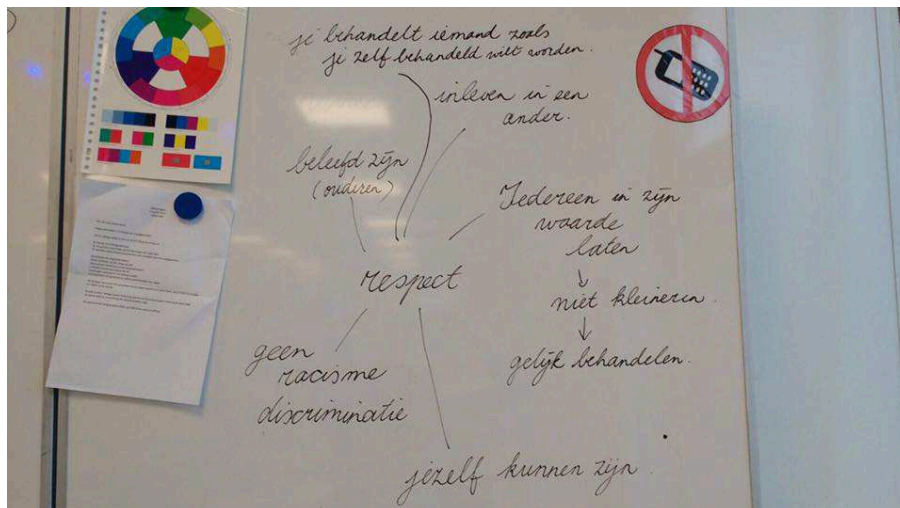 je behandelt iemand zoals
je zelf behandeld wilt worden.
inleven in een
ander.
beleefd zijn
(ouderen)
Iedereen in zijn
waarde
laten
↓
niet kleineren.
↓
gelijk behandelen.
respect
geen
racisme
discriminatie
jezelf kunnen zijn.